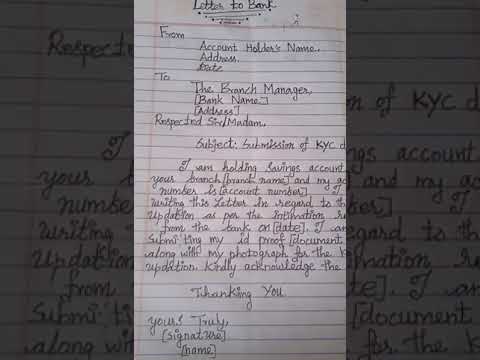 Letter to Bank
From
Account Holder's Name.
Address.
Date
To
The Branch Manager,
[Bank Name]
[Address]
Respected Sir/Madam,
Subject: Submission of KYC d
I am holding savings account
your branch [branch name] and my ac
number is [account number] I
writing this letter in regard to th
updation as per the intimation re
from the bank on [date]. I am
Submitting my id proof [document
along with my photograph for the K
updation. Kindly acknowledge the
Thanking You
your's Truly,
[signature]
[name]